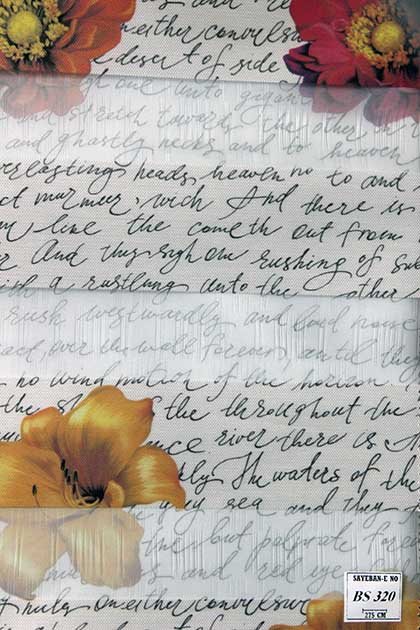 neither convulsive
desert of side
out unto gigan
and stretch towards the other in
and ghastly necks and to heaven
everlasting heads heaven no to and
ct murmur, wich And there is
line the cometh out from
And they sigh one rushing of
a rustling unto the other
rush westwardly and loud noise
over the wall forever, until the
no wind motion of the horizon
the the throughout the
river there is
The waters of the
sea and they
the but palpitate forever
and red eye
on either convulsive
SAYEBAN-E NO
BS 320
275 CM